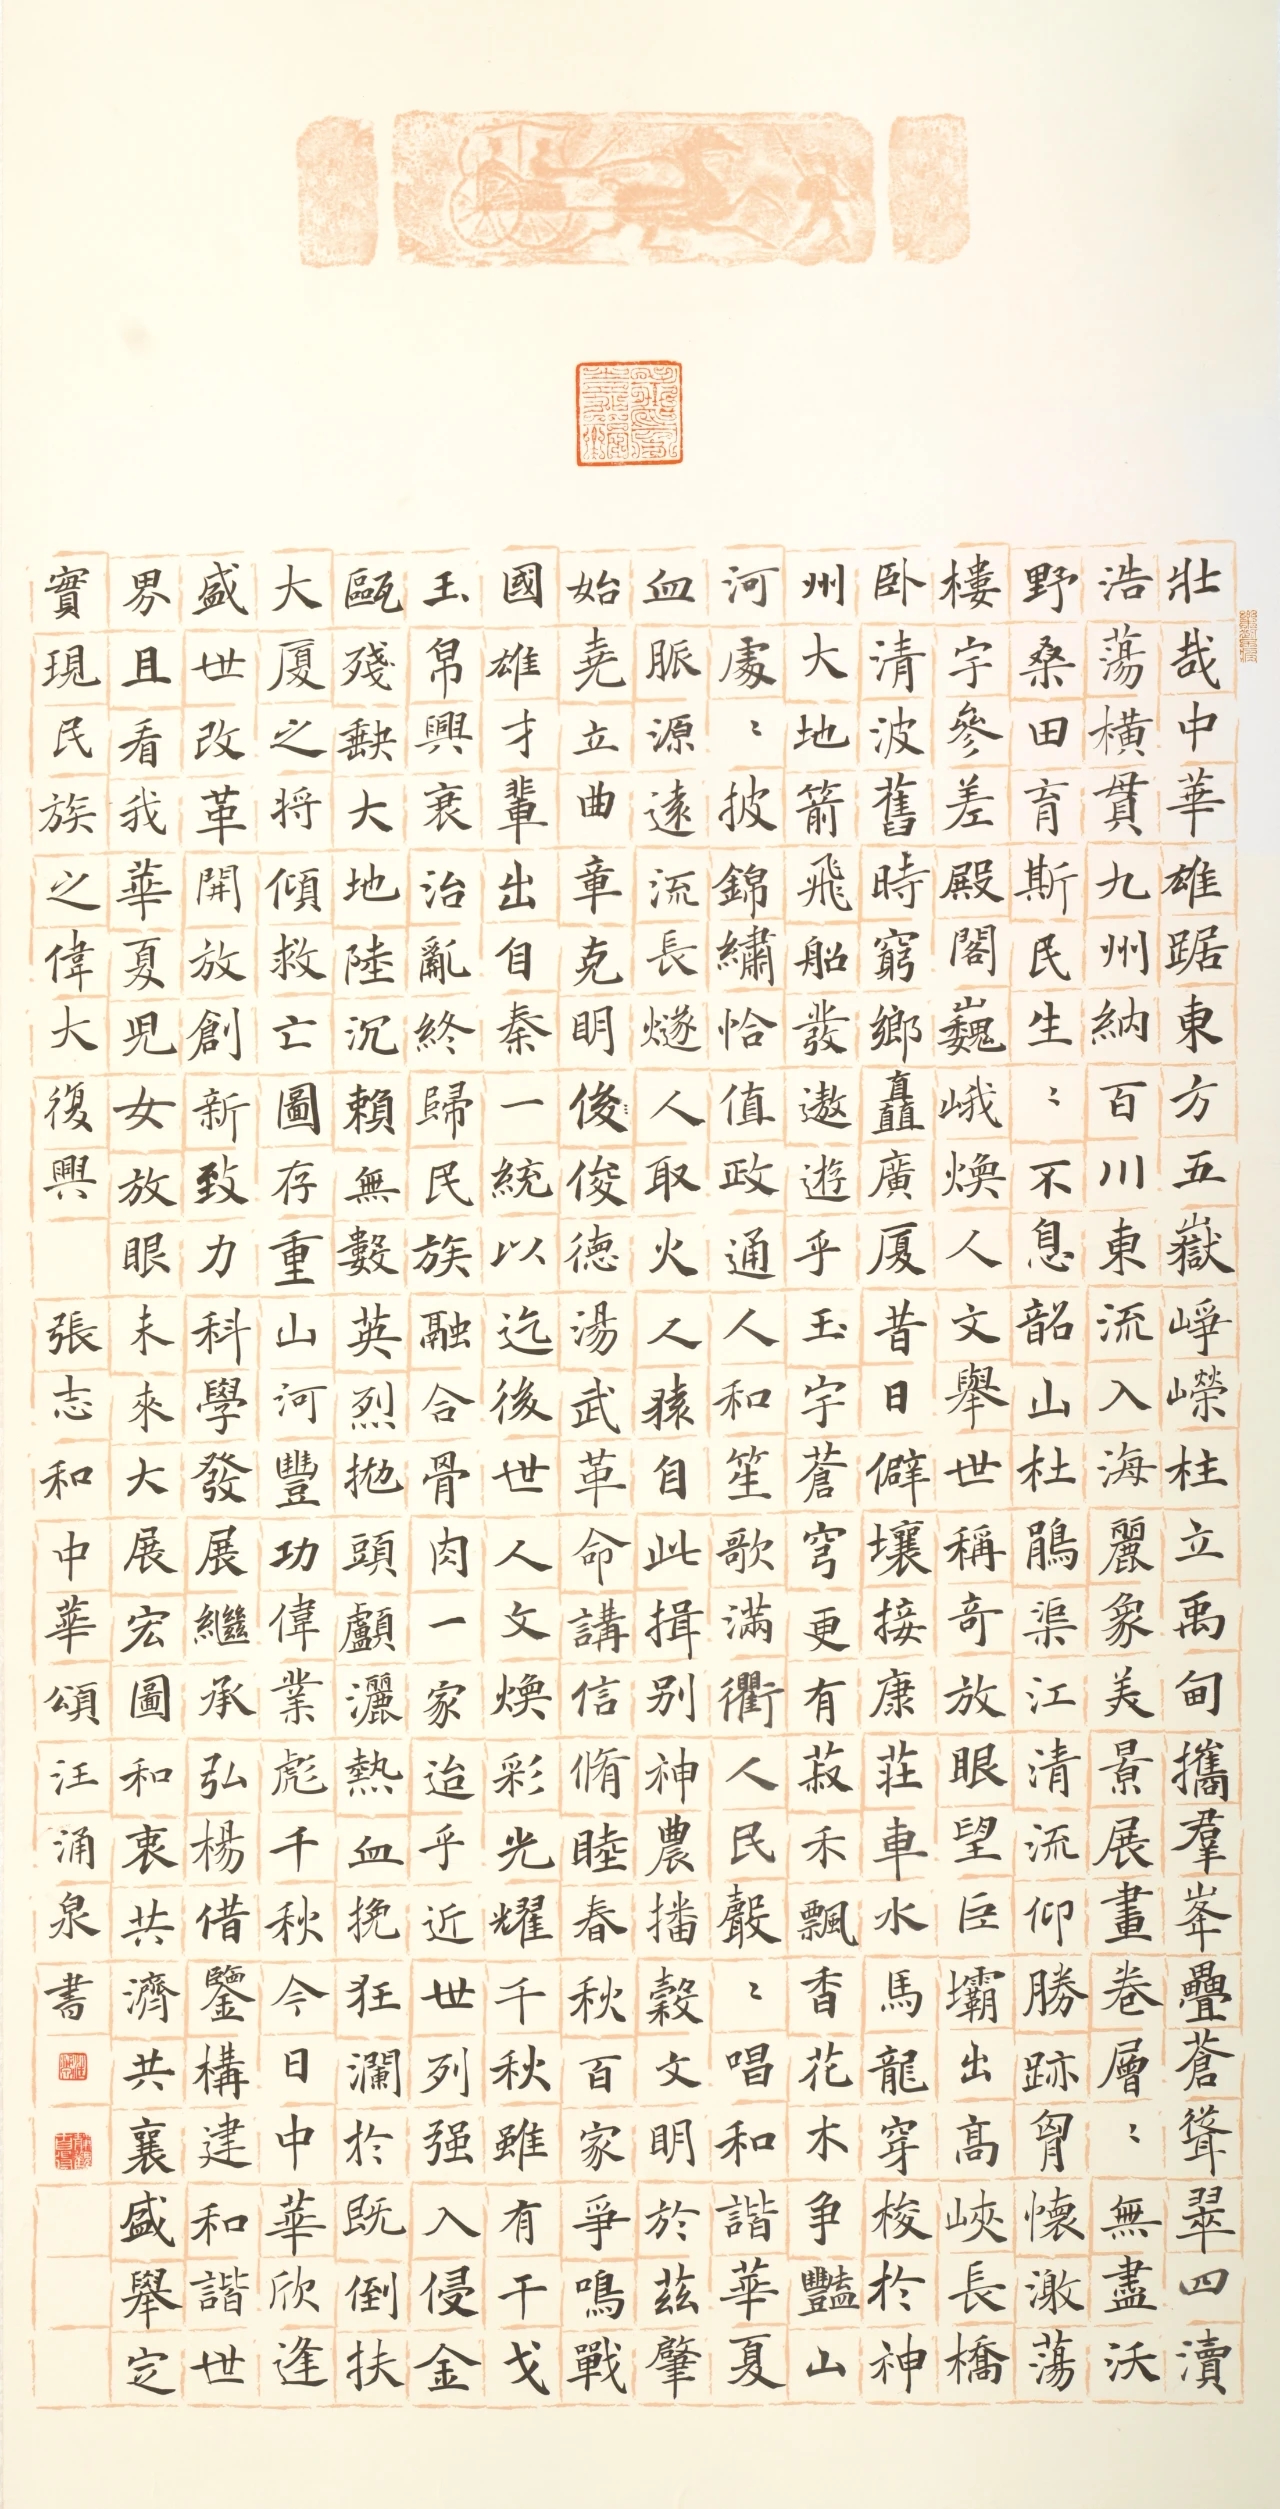 壯哉中華雄踞東方五嶽崢嶸柱立禹甸攜羣峯疊蒼聳翠四瀆
浩蕩橫貫九州納百川東流入海麗象美景展畫卷層〻無盡沃
野桑田育斯民生〻不息韶山杜鵑渠江清流仰勝跡胷懷激蕩
樓宇參差殿閣巍峨煥人文舉世稱奇放眼望巨壩出高峽長橋
卧清波舊時窮鄉矗廣厦昔日僻壤接康莊車水馬龍穿梭於神
州大地箭飛船發遨遊乎玉宇蒼穹更有菽禾飄香花木爭豔山
河處〻披錦繡恰值政通人和笙歌滿衢人民聲〻唱和諧華夏
血脈源遠流長燧人取火人猿自此揖别神農播穀文明於茲肇
始堯立曲章克明俊俊德湯武革命講信脩睦春秋百家爭鳴戰
國雄才輩出自秦一統以迄後世人文煥彩光耀千秋雖有干戈
玉帛興衰治亂終歸民族融合骨肉一家迨乎近世列强入侵金
甌殘缺大地陸沉賴無數英烈拋頭顱灑熱血挽狂瀾於既倒扶
大厦之將傾救亡圖存重山河豐功偉業彪千秋今日中華欣逢
盛世改革開放創新致力科學發展繼承弘楊借鑒構建和諧世
界且看我華夏兒女放眼未來大展宏圖和衷共濟共襄盛舉定
實現民族之偉大復興 張志和中華頌汪涌泉書